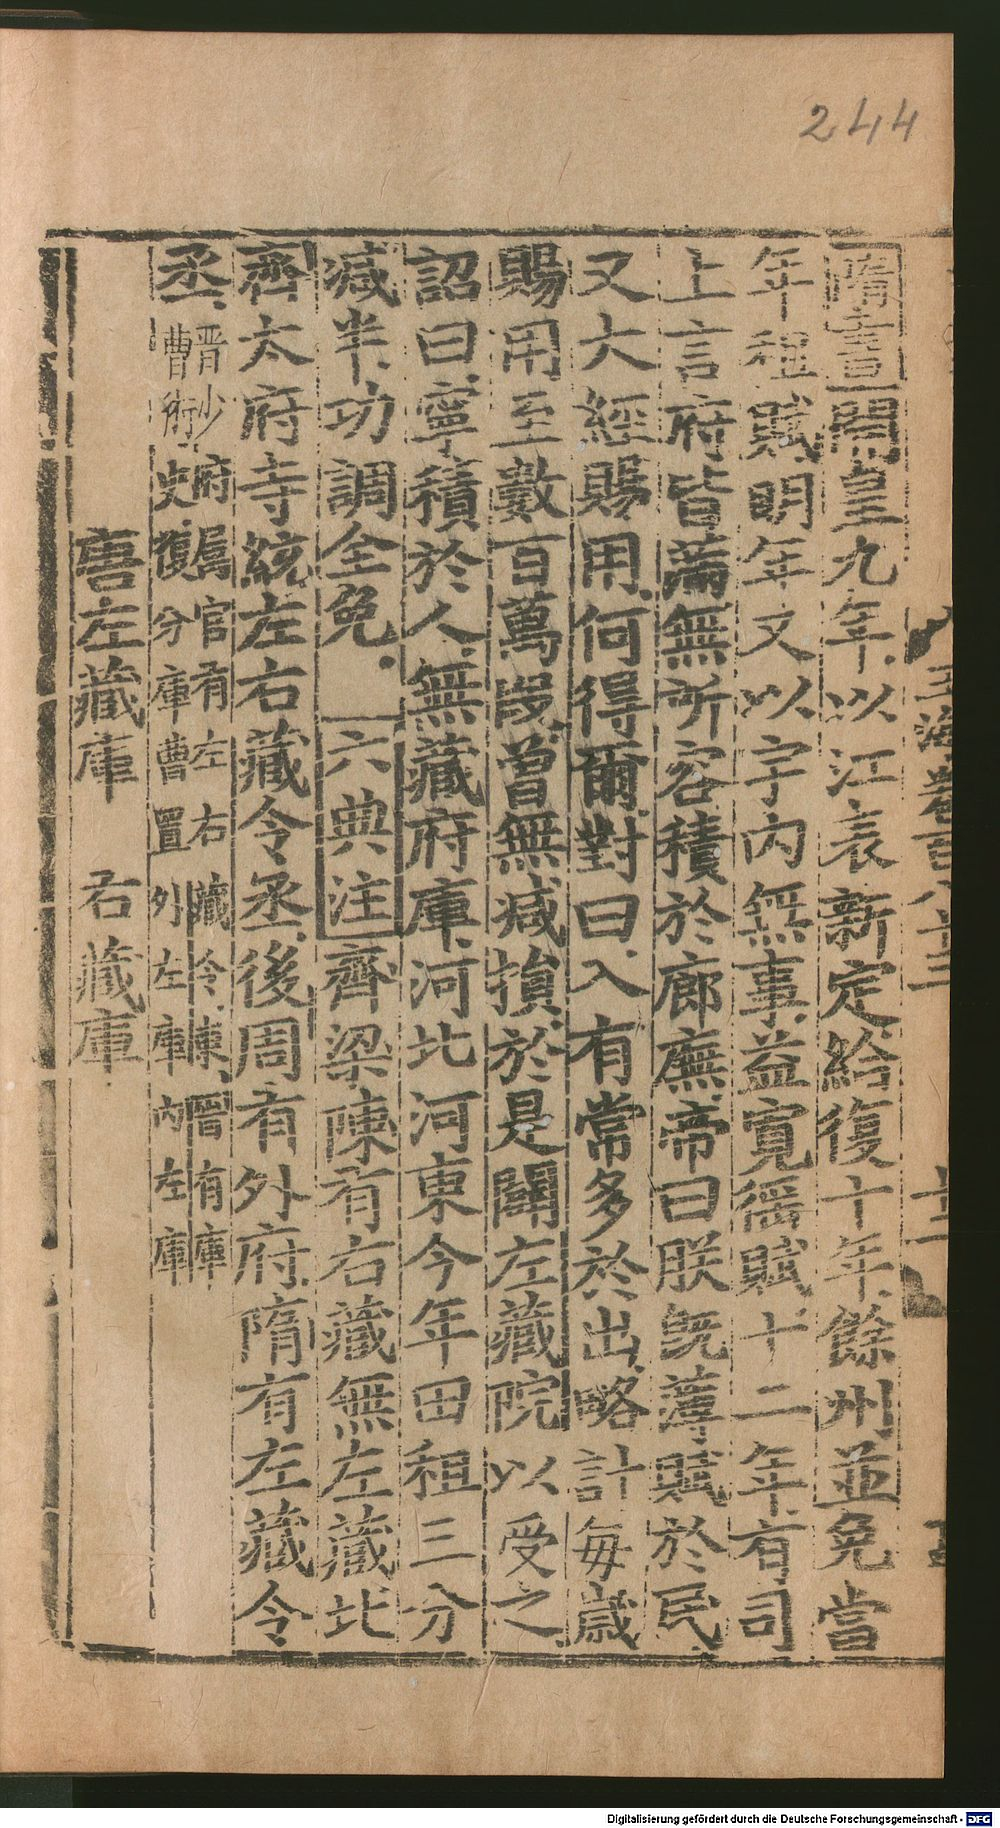 244
隋書開皇九年以江表新定給復十年餘州並免當
年租賦明年又以宇内無事益寬徭賦十二年有司
上言府皆滿無所容積於廊廡帝曰朕旣薄賦於民
又大經賜用何得爾對曰入有常多於出略計每歲
賜用至數百萬段曾無减損於是闢左藏院以受之
詔曰寧積於人無藏府庫河北河東今年田租三分
减半功調全免六典注齊梁陳有右藏無左藏北
齊太府寺統左右藏令丞後周有外府隋有左藏令
丞晋少府属官有左右藏令東晋有庫
曹術史復分庫曹置外左庫内左庫
唐左藏庫 右藏庫
Digitalisierung gefördert durch die Deutsche Forschungsgemeinschaft - DFG